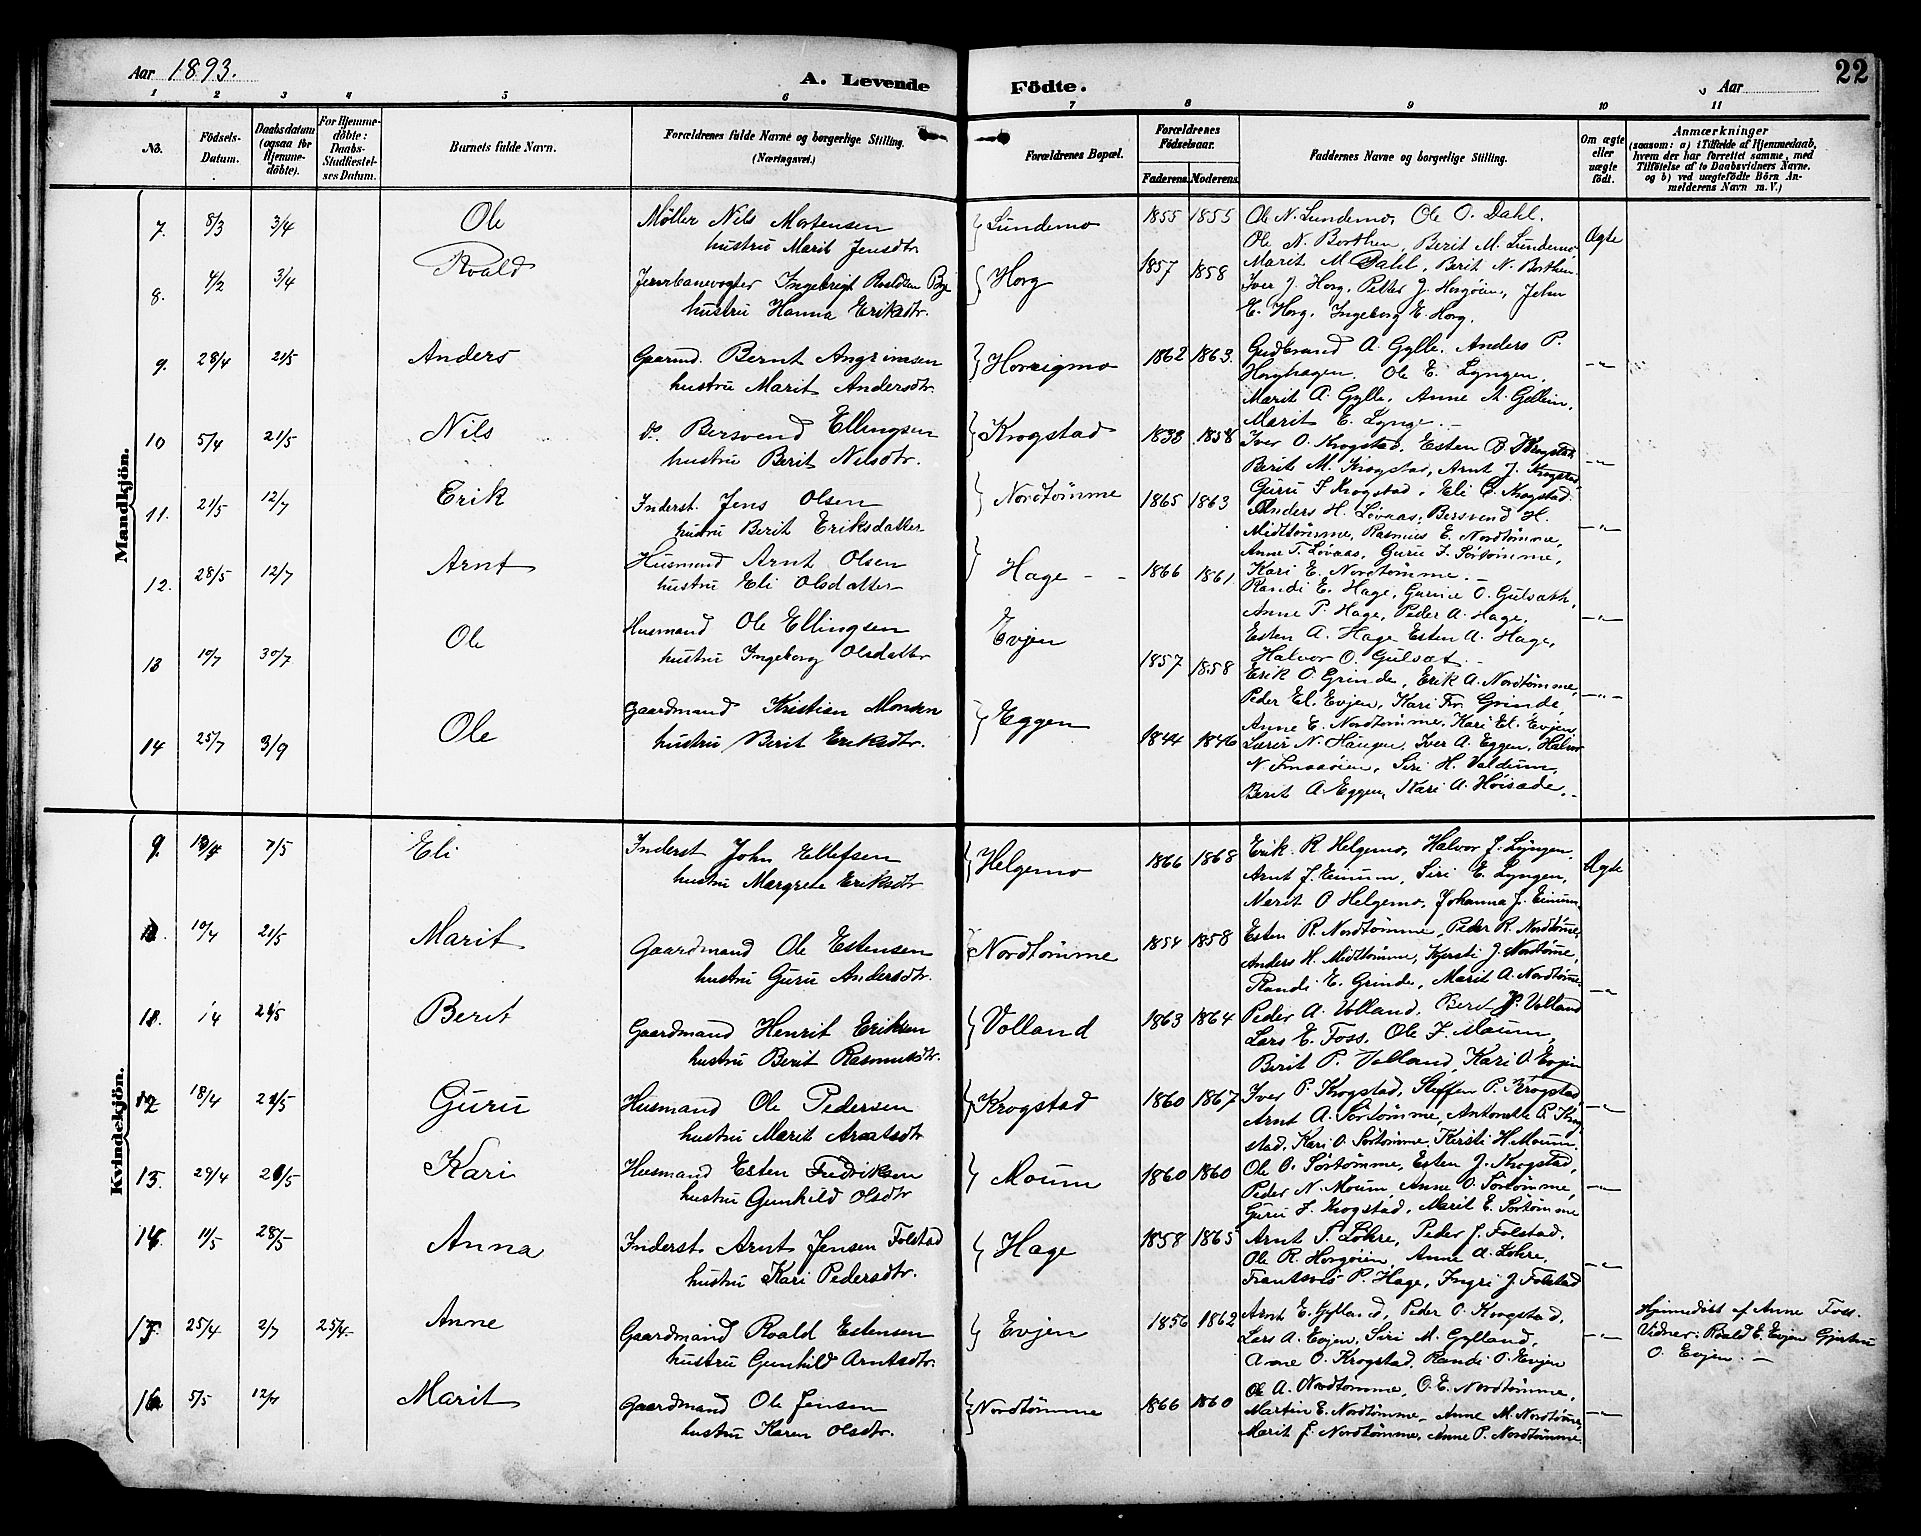 Aar 1893.
A. Levende Födte.
Aar
22
1 2 3 4 5 6 7 8 9 10 11
No.
Födsels-Datum.
Daabsdatum (ogsaa for Hjemmedöbte).
For Hjemmedöbte: Daabs-Stadfæstelses Datum.
Barnets fulde Navn.
Forældrenes fulde Navne og borgerlige Stilling. (Næringsvei.)
Forældrenes Bopæl.
Forældrenes Födselsaar.
Faderens. Moderens.
Faddernes Navne og borgerlige Stilling.
Om ægte eller uægte födt.
Anmærkninger (saasom: a) i Tilfælde af Hjemmedaab, hvem der har forrettet samme, med Tilföielse af to Daabsvidners Navne, og b) ved uægtefödte Börn Anmelderens Navn m. V.)
Mandkjön.
7. 8/3 3/4 Ole Møller Nils Mortensen
hustru Marit Jensdtr
Lundemo 1855 1855 Ole N. Lundemo, Ole O. Dahl.
Ole N. Borthen, Berit M. Lundemo, Ægte
Marit M Dahl, Berit N. Borthen
8. 4/2 3/4 Roald Jernbanevogter Ingebrigt Roaldsen Bye
hustru Hanna Eriksdtr.
Horg 1857 1858 Iver J. Horg, Petter J. Horgøien, John
E. Horg, Ingeborg E. Horg.
9. 28/4 21/5 Anders Gaarmd. Bernt Angrimsen
hustru Marit Andersdtr.
Horrigmo 1862 1863. Gudbrand A. Gylle. Anders P.
Horghagen, Ole E. Lyngen, -"-
Marit A. Gylle, Anne A. Gellein,
Marit E. Lynge. -
10 5/4 21/5 Nils do Bersvend Ellingsen
hustru Berit Nilsdtr.
Krogstad 1838 1858 Iver O. Krogstad, Esten B. Krogstad,
Berit M. Krogstad, Arnt J. Krogstad, -"-
Guru S Krogstad, Eli O. Krogstad.
11. 21/5 12/7 Erik Inderst. Jens Olsen
hustru Berit Eriksdatter
Nordtømme 1865 1863 Anders H. Løvaas, Bersvend H.
Midttømme, Rasmus E. Nordtømme, -"-
Anne T. Løvaas, Guru J. Sørtømme,
Kari E. Nordtømme. -
12. 28/5 12/7 Arnt Husmand Arnt Olsen
hustru Eli Olsdatter
Hage - - 1866 1861. Randi E. Hage, Gunne O. Gulsath,
Anne P. Hage, Peder A. Hage, -"-
Esten A. Hage Esten A. Hage,
Halvor O. Gulsat. -
13 10/7 30/7 Ole Husmand Ole Ellingsen
hustru Ingeborg Olsdatter
Evjen 1857 1858 Erik O. Grinde, Erik A. Nordtømme,
Peder El. Evjen, Kari Fr. Grinde, -"-
Anne E. Nordtømme, Kari El. Evjen,
14 25/7 3/9 Ole Gaardmand Kristian Monsen
hustru Berit Eriksdtr.
Eggen 1844 1846 Lærer N. Haugen, Iver A. Eggen, Halvor
N. Smaaøien, Siri H. Valdum,
Berit A. Eggen, Kari A. Høisade. -
Kvindekjön.
9. 7/5 Eli Inderst John Ellefsen
hustru Margrete Eriksdtr
Helgemo 1866 1868 Erik R Helgemo, Halvor J. Lyngen,
Arnt J. Einum, Siri E. Lyngen, Ægte
Marit O Helgemo, Johanna J. Einum
10/4 21/5 Marit Gaardmand Ole Estensen
hustru Guru Andersdtr.
Nordtømme 1854 1858 Esten R. Nordtømme, Peder R. Nordtømme,
Anders H. Midttømme, Kjersti J. Nordtømme,
Randi E. Grinde, Marit A. Nordtømme -"-
21/5 Berit Gaardmand Henrik Eriksen
hustru Berit Rasmusdtr.
Volland 1863 1864 Peder A. Volland, Berit P. Volland
Lars E. Foss, Ole J. Moum,
Berit P. Volland, Kari O. Evjen
12 18/4 21/5 Guru Husmand Ole Pedersen
hustru Marit Arntsdtr
Krogstad 1860 1867 Iver P. Krogstad, Steffen P. Krogstad,
Arnt A. Sørtømme, Antonette P. Krog- -"-
stad, Kari O. Sørtømme, Kirsti H. Moum.
13. 29/4 21/5 Kari Husmand Esten Fredriksen
hustru Gunhild Olsdtr
Moum 1860 1860 Ole O. Sørtømme, Esten J. Krogstad,
Peder N. Moum, Anne O. Sørtømme, -"-
Guru J. Krogstad, Marit E. Sørtømme
14. 11/5 28/5 Anna Inderst Arnt Jensen Folstad
hustru Kari Pedersdtr.
Hage 1858 1865 Arnt S. Løhre, Peder J. Folstad,
Ole R. Horgøien, Anne A. Løhre, -"-
P. Hage, Ingri J. Folstad
15. 25/4 2/7 25/4 Anne Gaardmand Roald Estensen
hustru Gunhild Arntsdtr.
Evjen 1856 1862 Arnt E. Gylland, Peder O. Krogstad,
Lars A. Evjen, Siri M. Gylland, -"-
Anne O. Krogstad, Randi O. Evjen
Hjemmedøbt af Anne Foss.
Vidner: Roald E. Evjen Gjertru
O. Evjen. -
16 5/5 12/7 Marit Gaardmand Ole Jensen
hustru Karen Olsdtr.
Nordtømme 1866 1860 Ole A. Nordtømme, O. E. Nordtømme,
Martin E. Nordtømme, Anne M. Nordtømme, -"-
Marit J. Nordtømme, Anne P. Nordtømme.